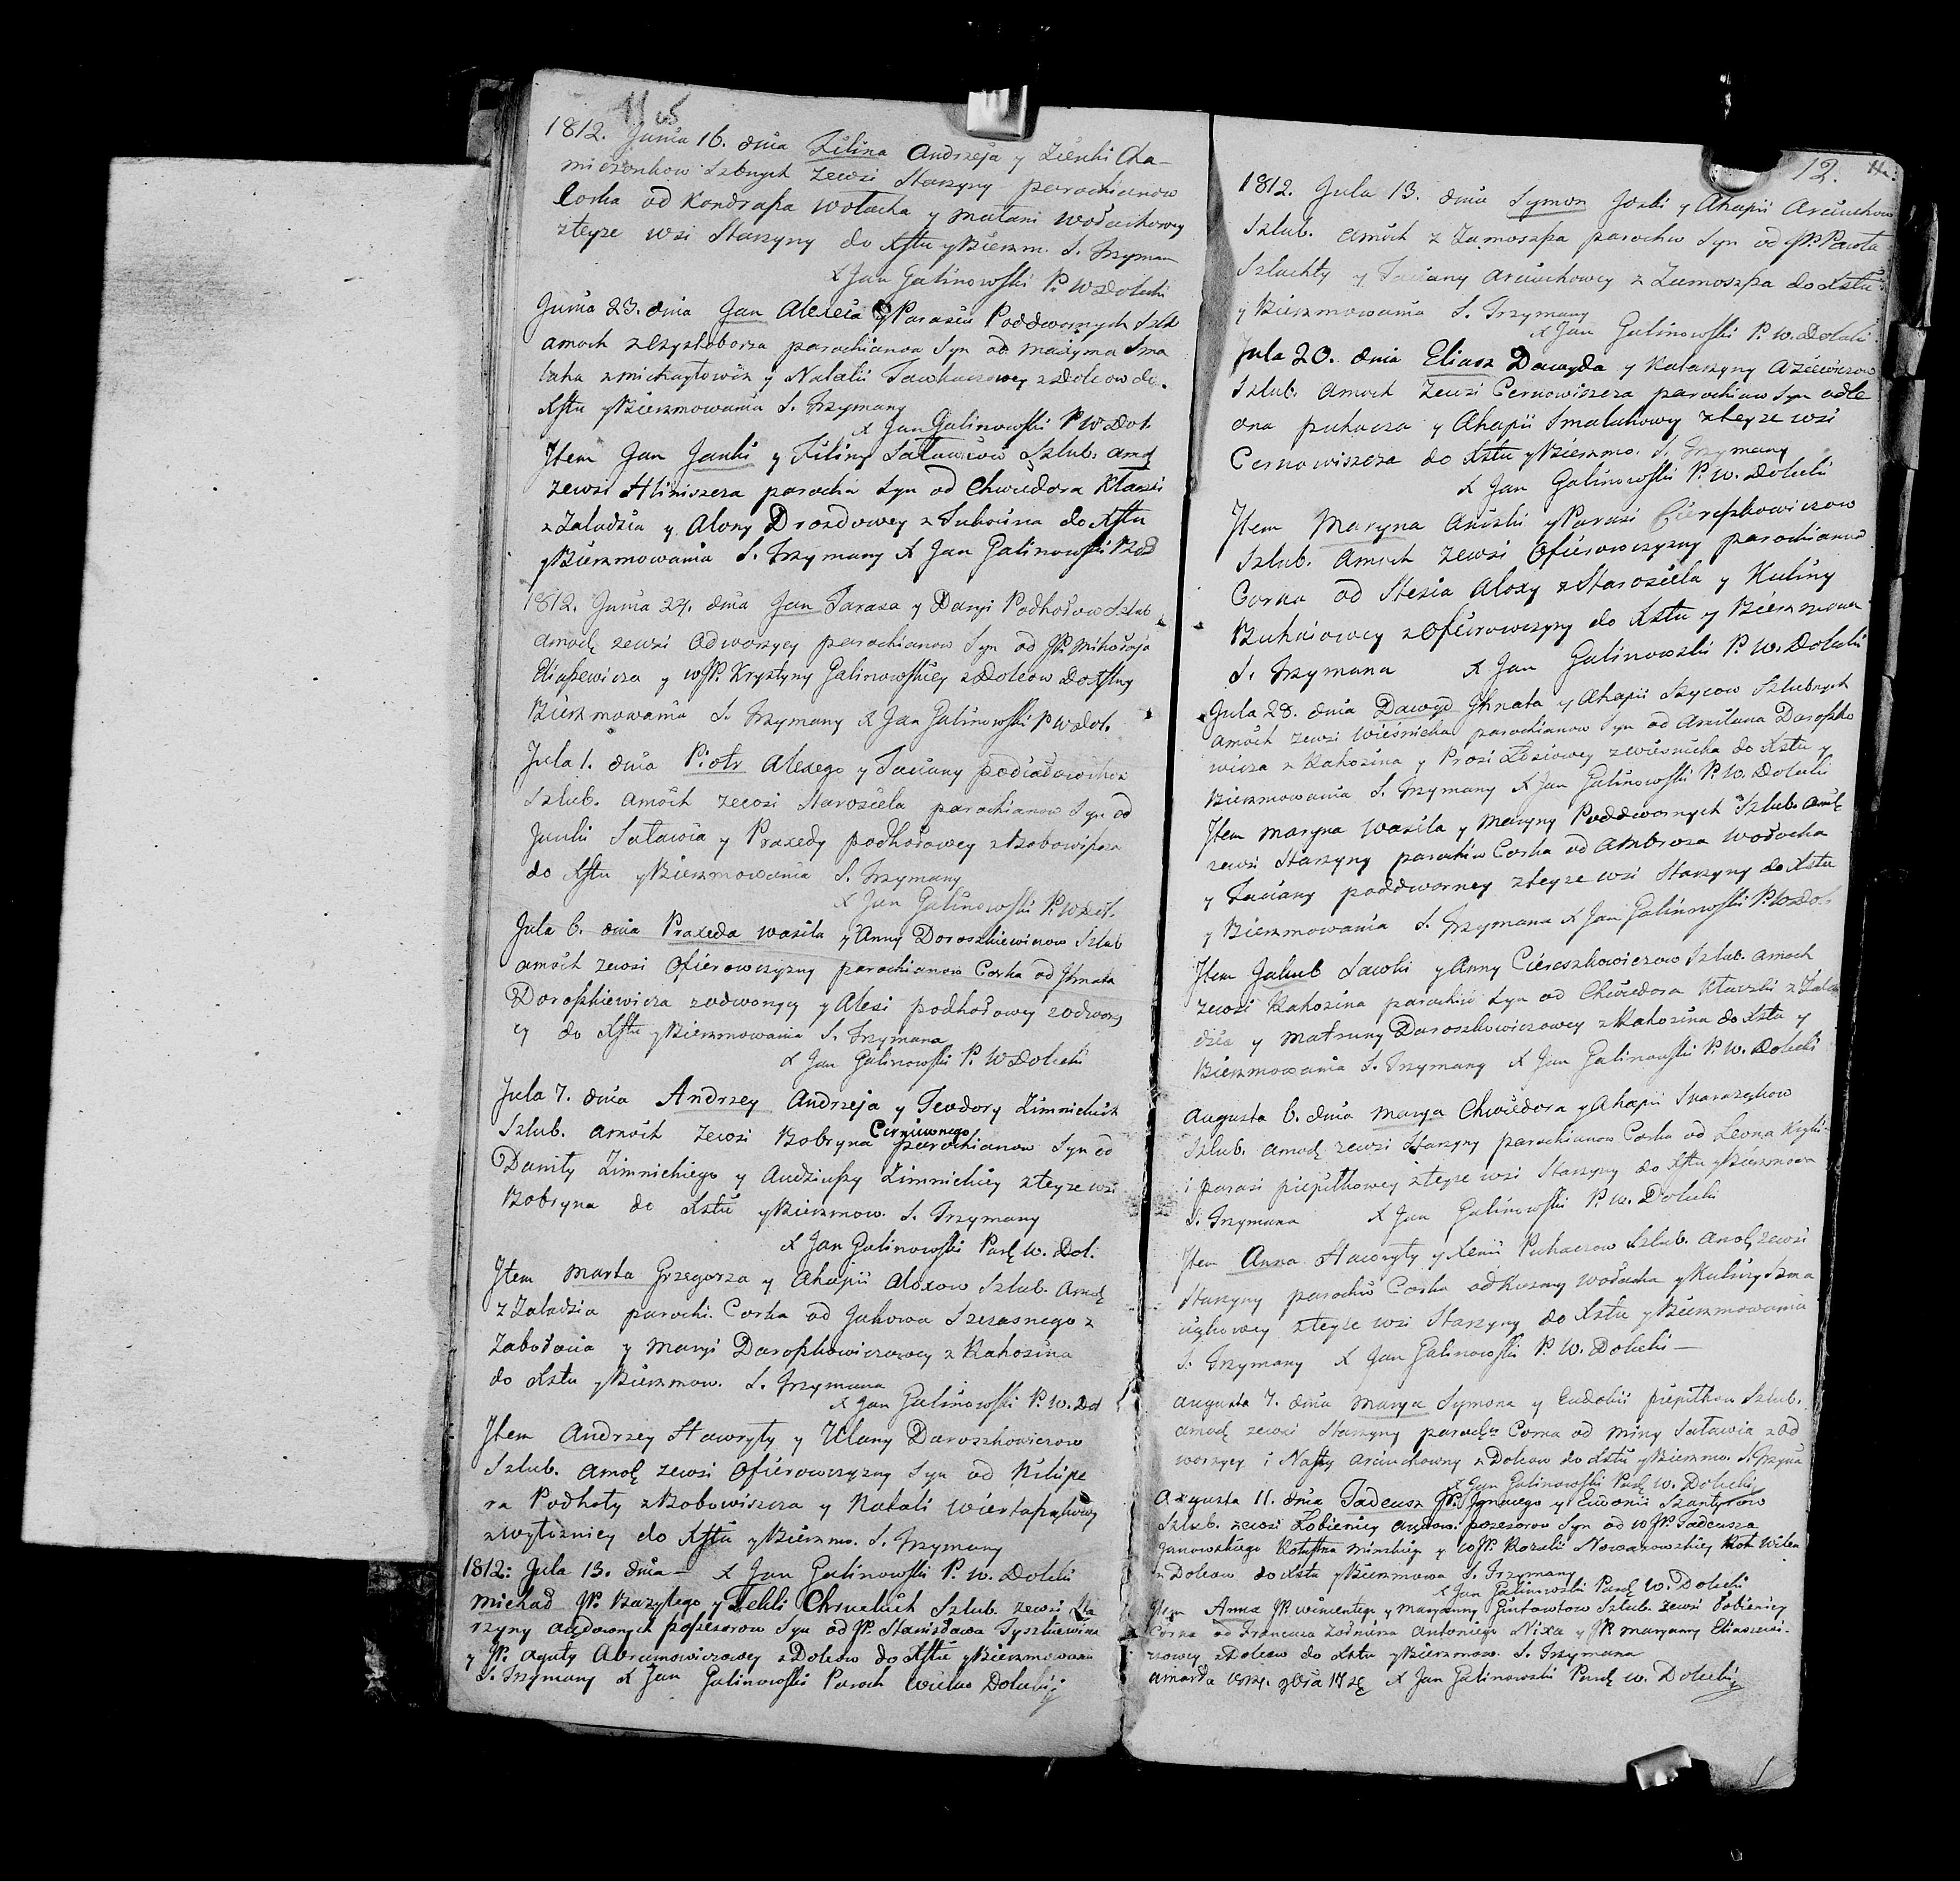 11 v5
1812. Junia 16. dnia Filina Andrzeja y Zienki Cha-
miezonkow Szbnych zewsi Starzyny parochianow
Corka od Kondrasza Wołacha y Matani Wołachowey
zteyze wsi Starzyny do Xstu y Bierzm. S. Trzyman
X Jan Galinowski P. W Dołecki
Junia 23. dnia Jan Alexeia y Parasiu Poddwornych Szlu
amoch parochianow Syn od Maxyma Sma
y Natalii z Dolcow do
Xstu y Bierzmowania S. Trzymany
X Jan Galinowski P W Doł.
Jtem Jan Janki y Filiny Saławiow Szlub. amę
zewsi Hliniszcza parochia Syn od Chwiedora Kłaczki
z Zaladzia y Alony Drozdowey z do Xstu
y Bierzmowania S. Trzymany X Jan Galinowski
1812. Junia 24. dnia Jan Tarasa y Daryi Podhołow Szlub
amoch zewsi Odworzycy parochianow Syn od JP. Mikołaja
Eliaszewicza y WJP. Krystyny Galinowskiey z Dolcow do Xstu y
Bierzmowania S. Trzymany X Jan Galinowski P W Doł.
Jula 1. dnia Piotr Alexego y Taciany
Szlub. amoch zewsi Starosiela parochianow Syn od
Janki Saławia y Praxedy Podhołowey z Bobowiszcza
do Xstu y Bierzmowania S. Trzymany
X Jan Galinowski P. W Doł.
Jula 6. dnia Praxeda Wasila y Anny Doroszkiewiczow Szlub
amoch zewsi Ofierowszyzny parochianow Corka od Jhnata
Doroszkiewicza zodworzycy y Alesi Podhołowey zodworzy
cy do Xstu y Bierzmowania S. Trzymana
X Jan Galinowski P. W Dołecki
Jula 7. dnia Andrzey Andrzeja y Teodory Zimnickich
Szlub. amoch zewsi Bobryna Cerniewnego parochianow Syn od
Daniły Zimnickiego y Audziuszy Zimnickiey zteyze wsi
Bobryna do Xstu y Bierzmow. S. Trzymany
X Jan Galinowski Parch W. Doł.
Jtem Marta Grzegorza y Ahapii Aloxow Szlub. amch
z Zaladzia parochi. Corka od Jakowa Szczasnego z
Zabołocia y Maryi Daroszkowiczowey z Rahozina
do Xstu y Bierzmow. S. Trzymana
X Jan Galinowski P. W. Doł
Jtem Andrzey Hawryły y Ulany Daroszkowiczow
Szlub. amch zewsi Ofierowszyzny Syn od
ra Podhoły z Bobowiszcza y Natali
do Xstu y Bierzmo. S. Trzymany
1812: Jula 13. dnia – X Jan Galinowski P. W. Dołecki
Michał JP. Bazylego y Tekli Chruckich Szlub. zewsi Sta
rzyny possesorow Syn od JP. Stanisława Tyszkiewicza
y JP. Agaty Abramowiczowey z Dolcow do Xstu y Bierzmowania
S. Trzymany X Jan Galinowski Paroch Wielko Dołecki
12.
1812. Jula 13. dnia Symon Joski y Ahapii Arciuchow
Szlub. amoch z Zamoszsza parochia Syn od JP. Pawła
Szlachty y Taciany Arciuchowey z Zamoszsza do Xstu
y Bierzmowania S. Trzymany
X Jan Galinowski P. W. Dołecki
Jula 20. dnia Eliasz Dawyda y Katarzyny Aziewiczow
Szlub. amoch zewsi Cernowiszcza parochian Syn od Le
ona Puhacza y Ahapii Smaluchowy zteyze wsi
Cernowiszcza do Xstu y Bierzmo. S. Trzymany
X Jan Galinowski P. W. Dołecki
Jtem Maryna Aniski y Parasi Cieraszkowiczow
Szlub. amoch zewsi Ofierowszyzny parochianow
Corka od Stesia Aloxy z Starosiela y Kuliny
z Ofierowszyzny do Xstu y Bierzmowa
S. Trzymana X Jan Galinowski P. W. Dołecki
Jula 28. dnia Dawyd Jhnata y Ahapii Szycow Szlubnych
amoch zewsi Wieśnicka parochianow Syn od Darosko
wicza z Rahozina y Prosi zwiesnicka do Xstu y
Bierzmowania S. Trzymany X Jan Galinowski P. W. Dołecki
Jtem Maryna Wasila y Maryny Poddwornych Szlub. amch
zewsi Starzyny parochia Corka od Ambroza Wołocha
y Taciany Poddworney zteyze wsi Starzyny do Xstu
y Bierzmowania S. Trzymana X Jan Galinowski P. W. Do
Jtem Jakub Sawki y Anny Cieraszkowiczow Szlub. amoch
zewsi Rahozina parochia Syn od Chwiedora Kłaczki z Zala
dzia y Matruny Daroszkowiczowey z Rahozina do Xstu y
Bierzmowania S. Trzymany X Jan Galinowski P. W. Dołecki
Augusta 6. dnia Marya Chwiedora y Ahapii
Szlub. amch zewsi Starzyny parochianow Corka od Leona
i Parasi Piepiłkowey zteyze wsi Starzyny do Xstu y Bierzmowa
S. Trzymana X Jan Galinowski P. W. Dołecki
Jtem Anna Hawryły y Xenii Puhaczow Szlub. amch zewsi
Starzyny parochia Corka od Kuzmy Wołacha y Kuliny
zteyze wsi Starzyny do Xstu y Bierzmowania
S. Trzymany X Jan Galinowski P. W. Dołecki –
Augusta 7. dnia Marya Symona y Eudokii Piepiłkow Szlub.
amch zewsi Starzyny parochia Corka od Miny Saławia zod
worzycy i Nasty Arciuchowny z Dolcow do Xstu y Bierzmo. S. Trzyma
X Jan Galinowski Parch W. Dołecki
Augusta 11. dnia Tadeusz JP. Jgnacego y Eudonii Szantyrow
Szlub. zewsi Łobienicy possesorow Syn od WJP. Tadeusza
Janowskiego y WJP. Rozalii Nowarowskiey
z Dolcow do Xstu y Bierzmowa S. Trzymany
X Jan Galinowski Parch W. Dołecki
Jtem Anna JP. Wincentego y Maryanny Gintowtow Szlub. zewsi Łobienicy
Corka od Antoniego y JP. Maryanny Eliaszewi-
czowey z Dolcow do Xstu y Bierzmow. S. Trzymana
X Jan Galinowski Parch W. Dołecki